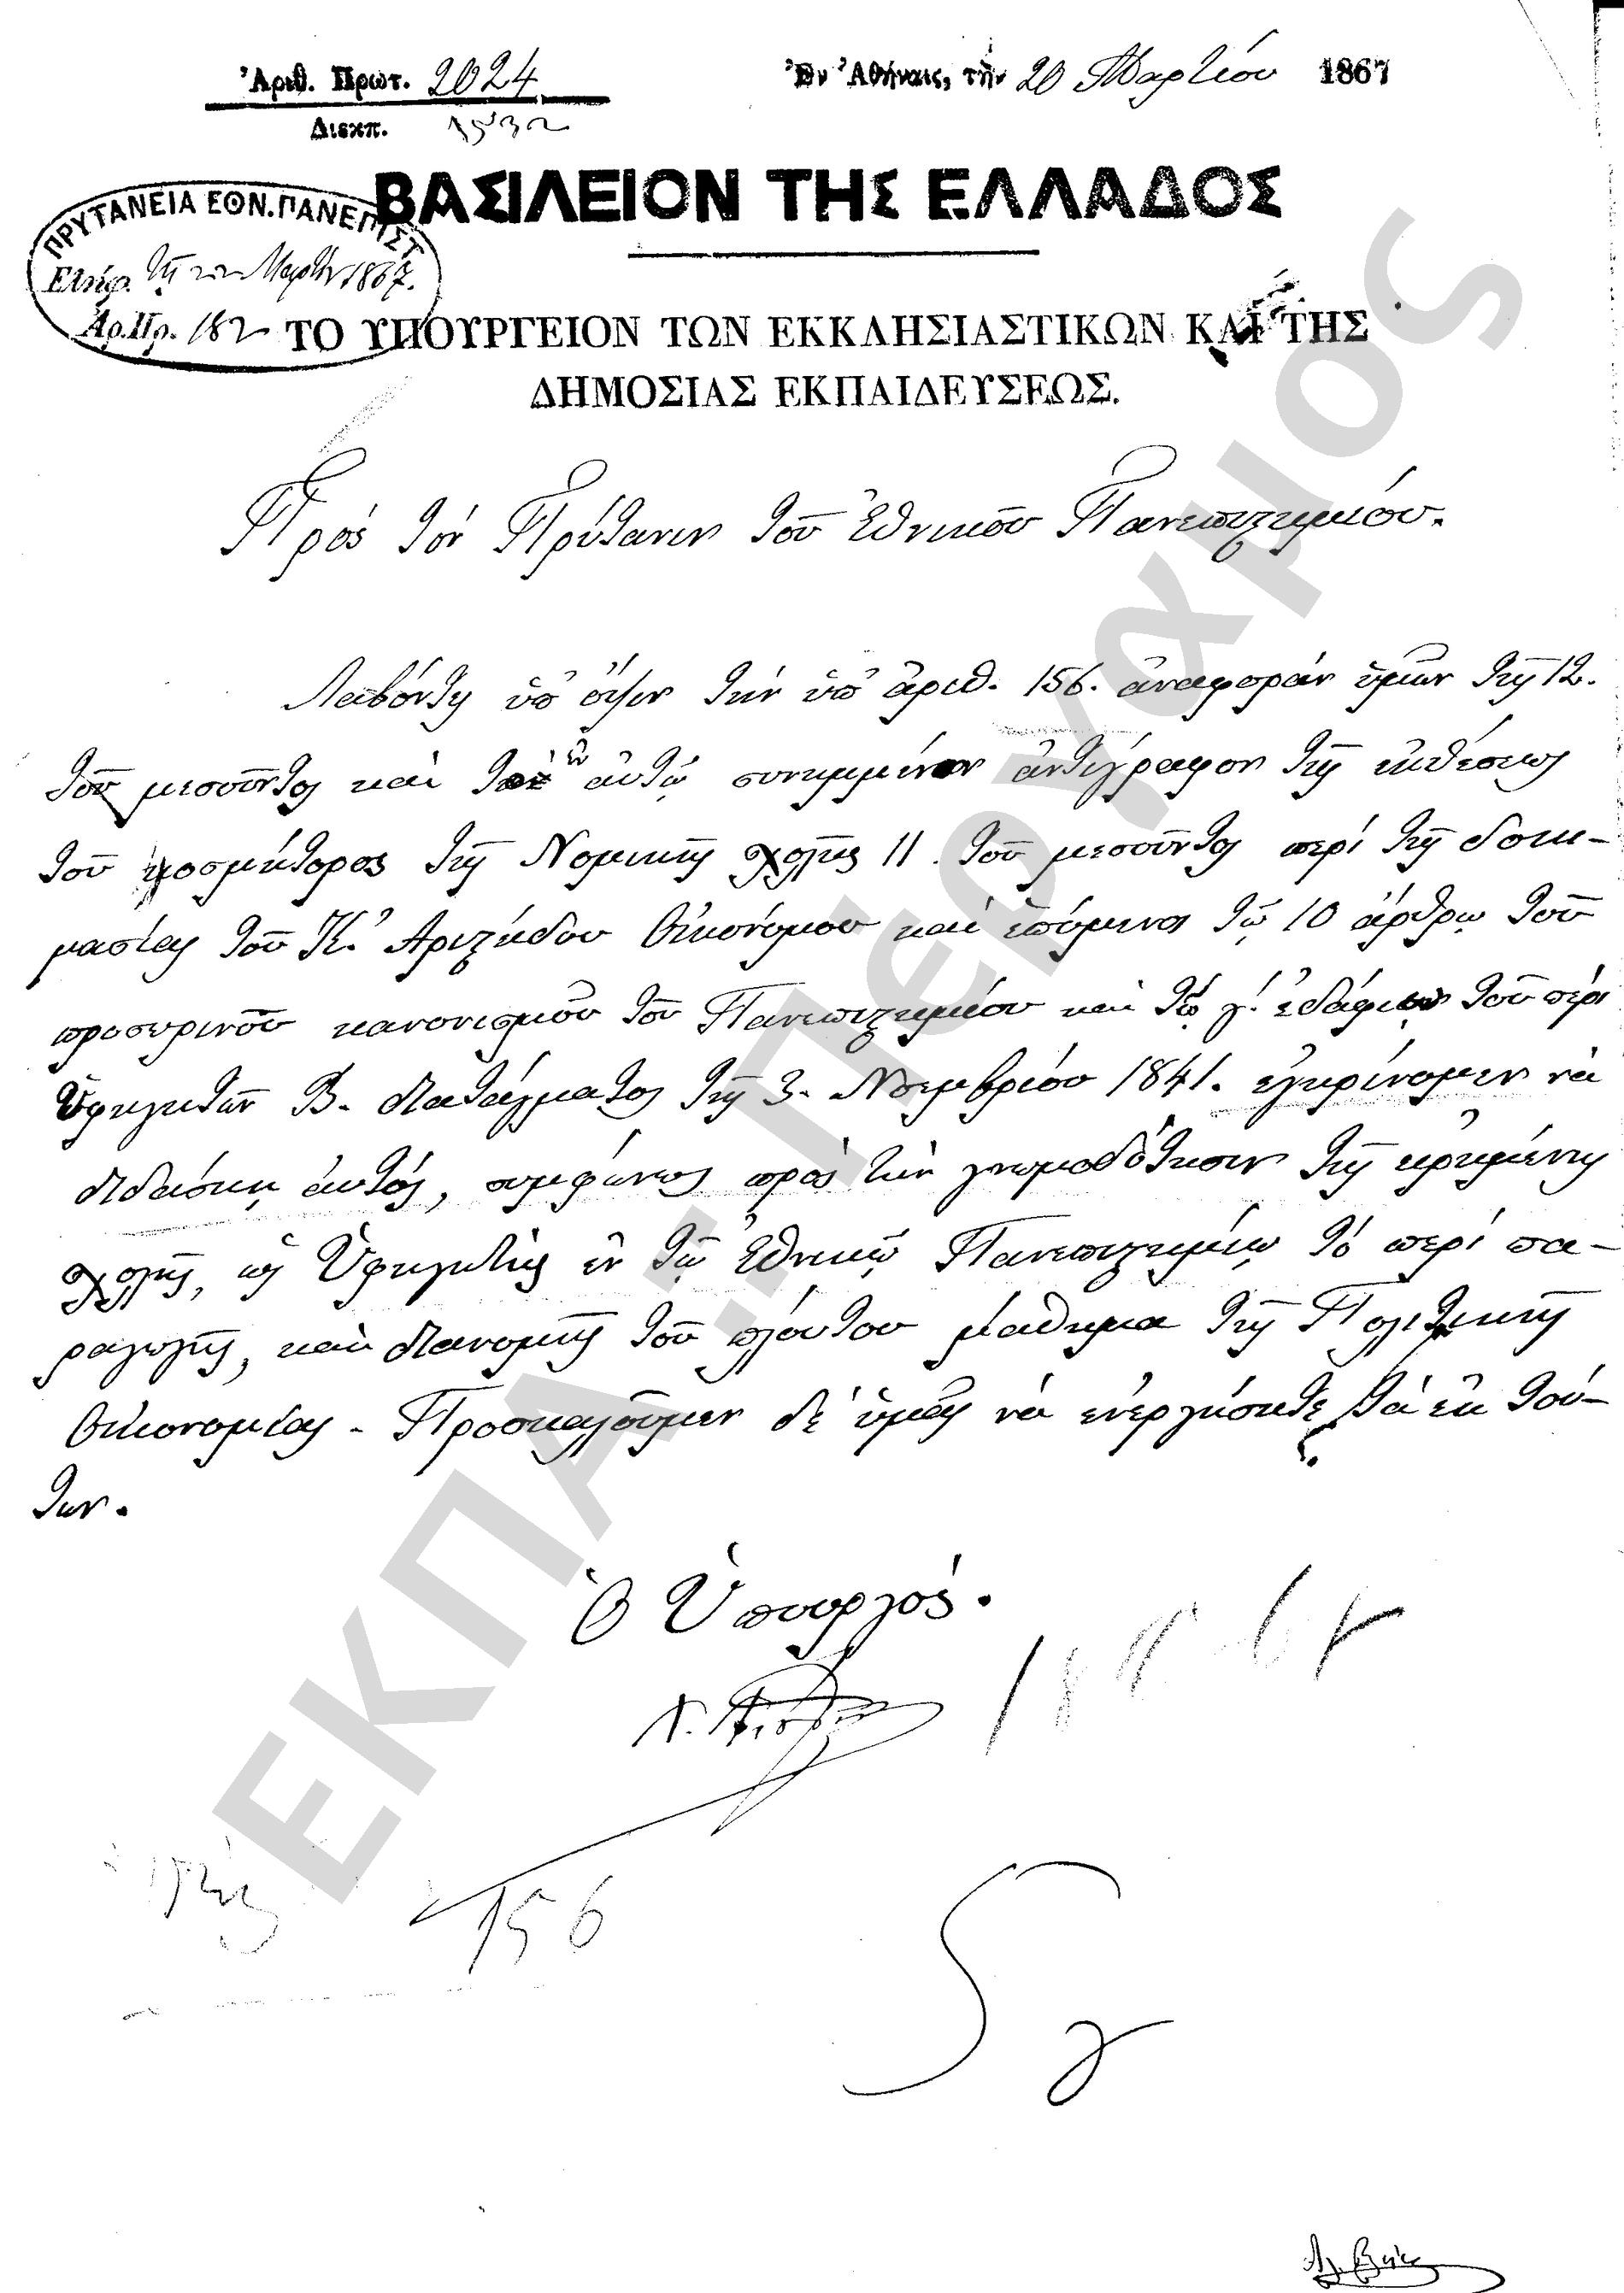 Ἀριθ. Πρωτ. 2024
Διεκπ. 1532
Ἐν Ἀθήναις, τὴν 20 Μαρτίου 1867
ΒΑΣΙΛΕΙΟΝ ΤΗΣ ΕΛΛΑΔΟΣ
ΠΡΥΤΑΝΕΙΑ ΕΘΝ. ΠΑΝΕΠΙΣΤ
Ελήφ. τῇ 22 Μαρτίου 1867.
Αρ. Πρ. 182
ΤΟ ΥΠΟΥΡΓΕΙΟΝ ΤΩΝ ΕΚΚΛΗΣΙΑΣΤΙΚΩΝ ΚΑΙ ΤΗΣ
ΔΗΜΟΣΙΑΣ ΕΚΠΑΙΔΕΥΣΕΩΣ.
Πρὸς τὸν Πρύτανιν τοῦ Ἐθνικοῦ Πανεπιστημίου.
Λαβόντες ὑπ' ὄψιν τὴν ὑπ' ἀριθ. 156. ἀναφορὰν ὑμῶν τῆς 12.
τοῦ μεσοῦντος καὶ τὸ ἐν αὐτῷ συνημμένον ἀντίγραφον τῆς ἐκθέσεως
τοῦ κοσμήτορος τῆς Νομικῆς σχολῆς 11. τοῦ μεσοῦντος περὶ τῆς δοκι-
μασίας τοῦ Κ. Ἀριστείδου Οἰκονόμου καὶ ἑπόμενοι τῷ 10 ἄρθρῳ τοῦ
προσωρινοῦ κανονισμοῦ τοῦ Πανεπιστημίου καὶ τῷ γ΄. ἐδαφίῳ τοῦ περὶ
Ὑφηγητῶν Β. διατάγματος τῆς 3. Νοεμβρίου 1841. ἐγκρίνομεν νὰ
διδάσκῃ αὐτός, συμφώνως πρὸς τὴν γνωμοδότησιν τῆς εἰρημένης
σχολῆς, ὡς Ὑφηγητὴς ἐν τῷ Ἐθνικῷ Πανεπιστημίῳ τὸ περὶ πα-
ραγωγῆς, καὶ διανομῆς τοῦ πλούτου μάθημα τῆς Πολιτικῆς
Οἰκονομίας - Προσκαλοῦμεν δὲ ὑμᾶς νὰ ἐνεργήσητε τὰ ἐκ τού-
των.
Ὁ Ὑπουργός.
156
ΕΚΠΑ - Πέργαμος